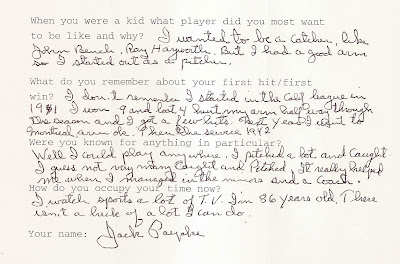 When you were a kid what player did you most want
to be like and why? I wanted to be a catcher, like
John Bench, Ray Hayworth. But I had a good arm
so I started out as a pitcher.
What do you remember about your first hit/first
win? I don't remember I started in the Calif league in
1941 I won 9 and lost 4 hurt my arm half way through
the season and I got a few hits. Next year I went to
Montreal arm ok. Then the service 1942
Were you known for anything in particular?
Well I could play anywhere. I pitched a lot and Caught
I guess not very many Caught and Pitched. It really helped
me when I managed in the minors and a Coach.
How do you occupy your time now?
I watch sports a lot of T.V. I'm 86 years old, There
isn't a heck of a lot I can do.
Your name: Jack